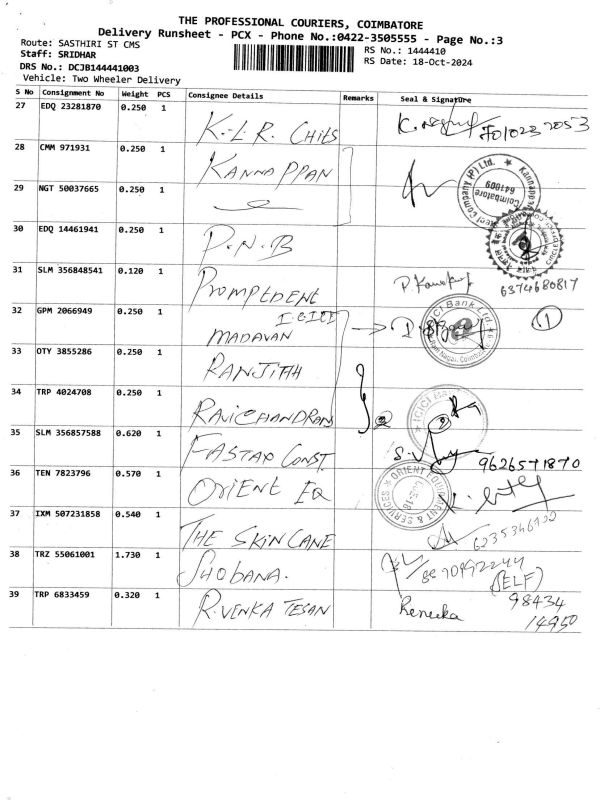 THE PROFESSIONAL COURIERS, COIMBATORE
Delivery Runsheet - PCX - Phone No.:0422-3505555 - Page No.:3
Route: SASTHIRI ST CMS
RS No.: 1444410
Staff: SRIDHAR
RS Date: 18-Oct-2024
DRS No.: DCJB144441003
Vehicle: Two Wheeler Delivery
S No Consignment No Weight PCS Consignee Details Remarks Seal & Signature
27 EDQ 23281870 0.250 1 K.L.R. CHITS
28 CMM 971931 0.250 1 KANNAPPAN
29 NGT 50037665 0.250 1
30 EDQ 14461941 0.250 1 P.N.B
31 SLM 356848541 0.120 1 PROMPTDENT 6374680817
32 GPM 2066949 0.250 1 MADAVAN 1
33 OTY 3855286 0.250 1 RANJITH
34 TRP 4024708 0.250 1 RAVICHANDRAN
35 SLM 356857588 0.620 1 FASTAP CONST 9626571870
36 TEN 7823796 0.570 1 ORIENT EQ
37 IXM 507231858 0.540 1 THE SKIN CANE
38 TRZ 55061001 1.730 1 SHOBANA. (SELF)
39 TRP 6833459 0.320 1 R.VENKATESAN Renuka 98434
14950